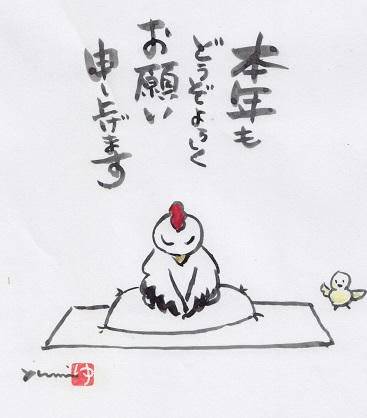 本年も
どうぞよろしく
お願い
申し上げます
yumi
ゆ